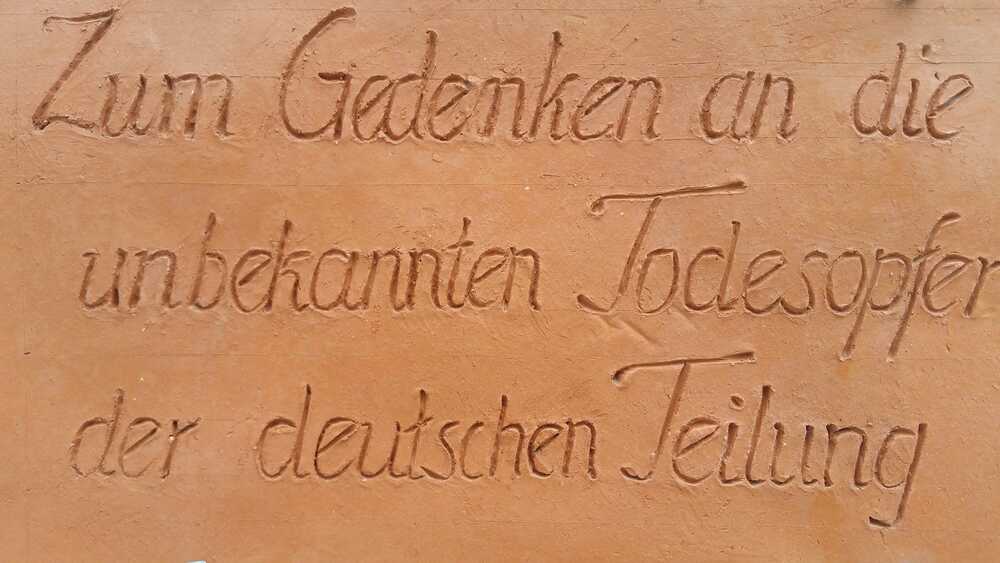 Zum Gedenken an die
unbekannten Todesopfer
der deutschen Teilung